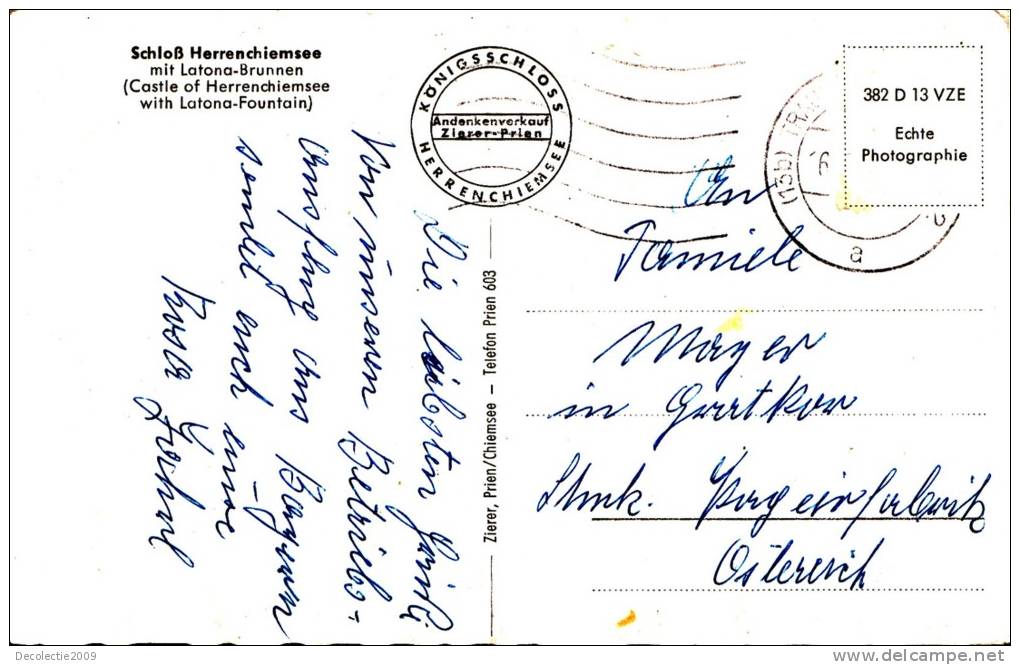 Schloß Herrenchiemsee
mit Latona-Brunnen
(Castle of Herrenchiemsee
with Latona-Fountain)
KÖNIGSSCHLOSS
Andenkenverkauf
Zierer-Prien
HERRENCHIEMSEE
(13b)
a
382 D 13 VZE
Echte
Photographie
Die liebsten Grüße
von unserem Betriebs-
ausflug aus Bayern
sendet euch eure
Rosa
Zierer, Prien/Chiemsee — Telefon Prien 603
An
Familie
Mayer
in Gratkorn
Stmk. Papierfabrik
Östereich
Decolectie2009
delcampe.net